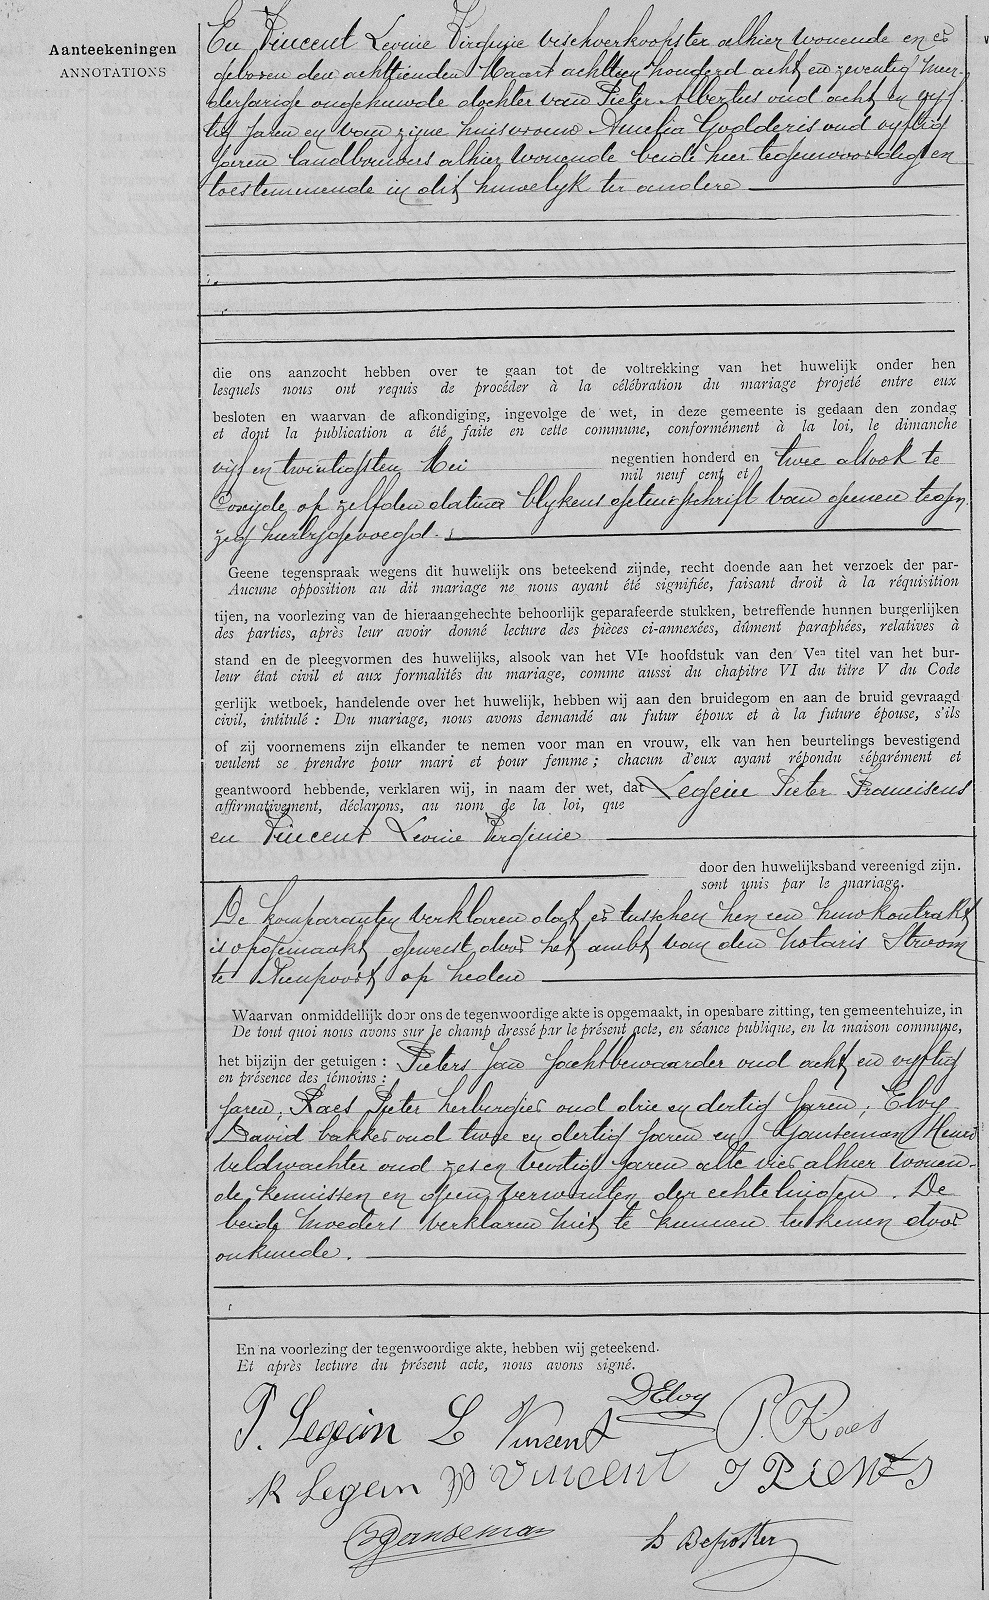 Aanteekeningen
ANNOTATIONS
En Vincent Leonie Virginie vischverkoopster alhier wonende en er
geboren den achttienden Maart achttien honderd acht en zeventig meer-
derjarige ongehuwde dochter van Pieter Albertus oud acht en vyf
tig jaren en van zijne huisvrouw Amelia Godderis oud vyftig
jaren landbouwers alhier wonende beide hier tegenwoordig en
toestemmende in dit huwelyk ter andere
die ons aanzocht hebben over te gaan tot de voltrekking van het huwelijk onder hen
lesquels nous ont requis de procéder à la célébration du mariage projeté entre eux
besloten en waarvan de afkondiging, ingevolge de wet, in deze gemeente is gedaan den zondag
et dont la publication a été faite en cette commune, conformément à la loi, le dimanche
vijf en twintigsten Mei negentien honderd en twee alsook te
mil neuf cent et
Coxyde op zelfden datum blykens opene schrift van geenen tegen
zeg hierbygevoegd.
Geene tegenspraak wegens dit huwelijk ons beteekend zijnde, recht doende aan het verzoek der par-
Aucune opposition au dit mariage ne nous ayant été signifiée, faisant droit à la réquisition
tijen, na voorlezing van de hieraangehechte behoorlijk geparafeerde stukken, betreffende hunnen burgerlijken
des parties, après leur avoir donné lecture des pièces ci-annexées, dûment paraphées, relatives à
stand en de pleegvormen des huwelijks, alsook van het VIe hoofdstuk van den Ven titel van het bur-
leur état civil et aux formalités du mariage, comme aussi du chapitre VI du titre V du Code
gerlijk wetboek, handelende over het huwelijk, hebben wij aan den bruidegom en aan de bruid gevraagd
civil, intitulé : Du mariage, nous avons demandé au futur époux et à la future épouse, s'ils
of zij voornemens zijn elkander te nemen voor man en vrouw, elk van hen beurtelings bevestigend
veulent se prendre pour mari et pour femme ; chacun d'eux ayant répondu séparément et
geantwoord hebbende, verklaren wij, in naam der wet, dat Legein Pieter Franciscus
affirmativement, déclarons, au nom de la loi, que
en Vincent Leonie Virginie
door den huwelijksband vereenigd zijn.
sont unis par le mariage.
De komparanten verklaren dat er tusschen hen een huwkontrakt
is opgemaakt geweest door het ambt van den notaris Stroom
te Nieupoort op heden
Waarvan onmiddellijk door ons de tegenwoordige akte is opgemaakt, in openbare zitting, ten gemeentehuize, in
De tout quoi nous avons sur le champ dressé par le présent acte, en séance publique, en la maison commune,
het bijzijn der getuigen : Pieters Jan Jachtbewaarder oud acht en vyftig
en présence des témoins :
jaren, Raes Pieter herbergier oud drie en dertig jaren, Elvoy
David bakker oud twee en dertig jaren en Ganseman Henri
veldwachter oud zes en veertig jaren alle vier alhier wonen-
de kennissen en geen verwanten der echtelingen. De
beide moeders verklaren niet te kunnen teekenen door
onkunde.
En na voorlezing der tegenwoordige akte, hebben wij geteekend.
Et après lecture du présent acte, nous avons signé.
DElvoy
P. Legein L Vincent P. Raes
Legein Vincent J PieteRs
Ganseman